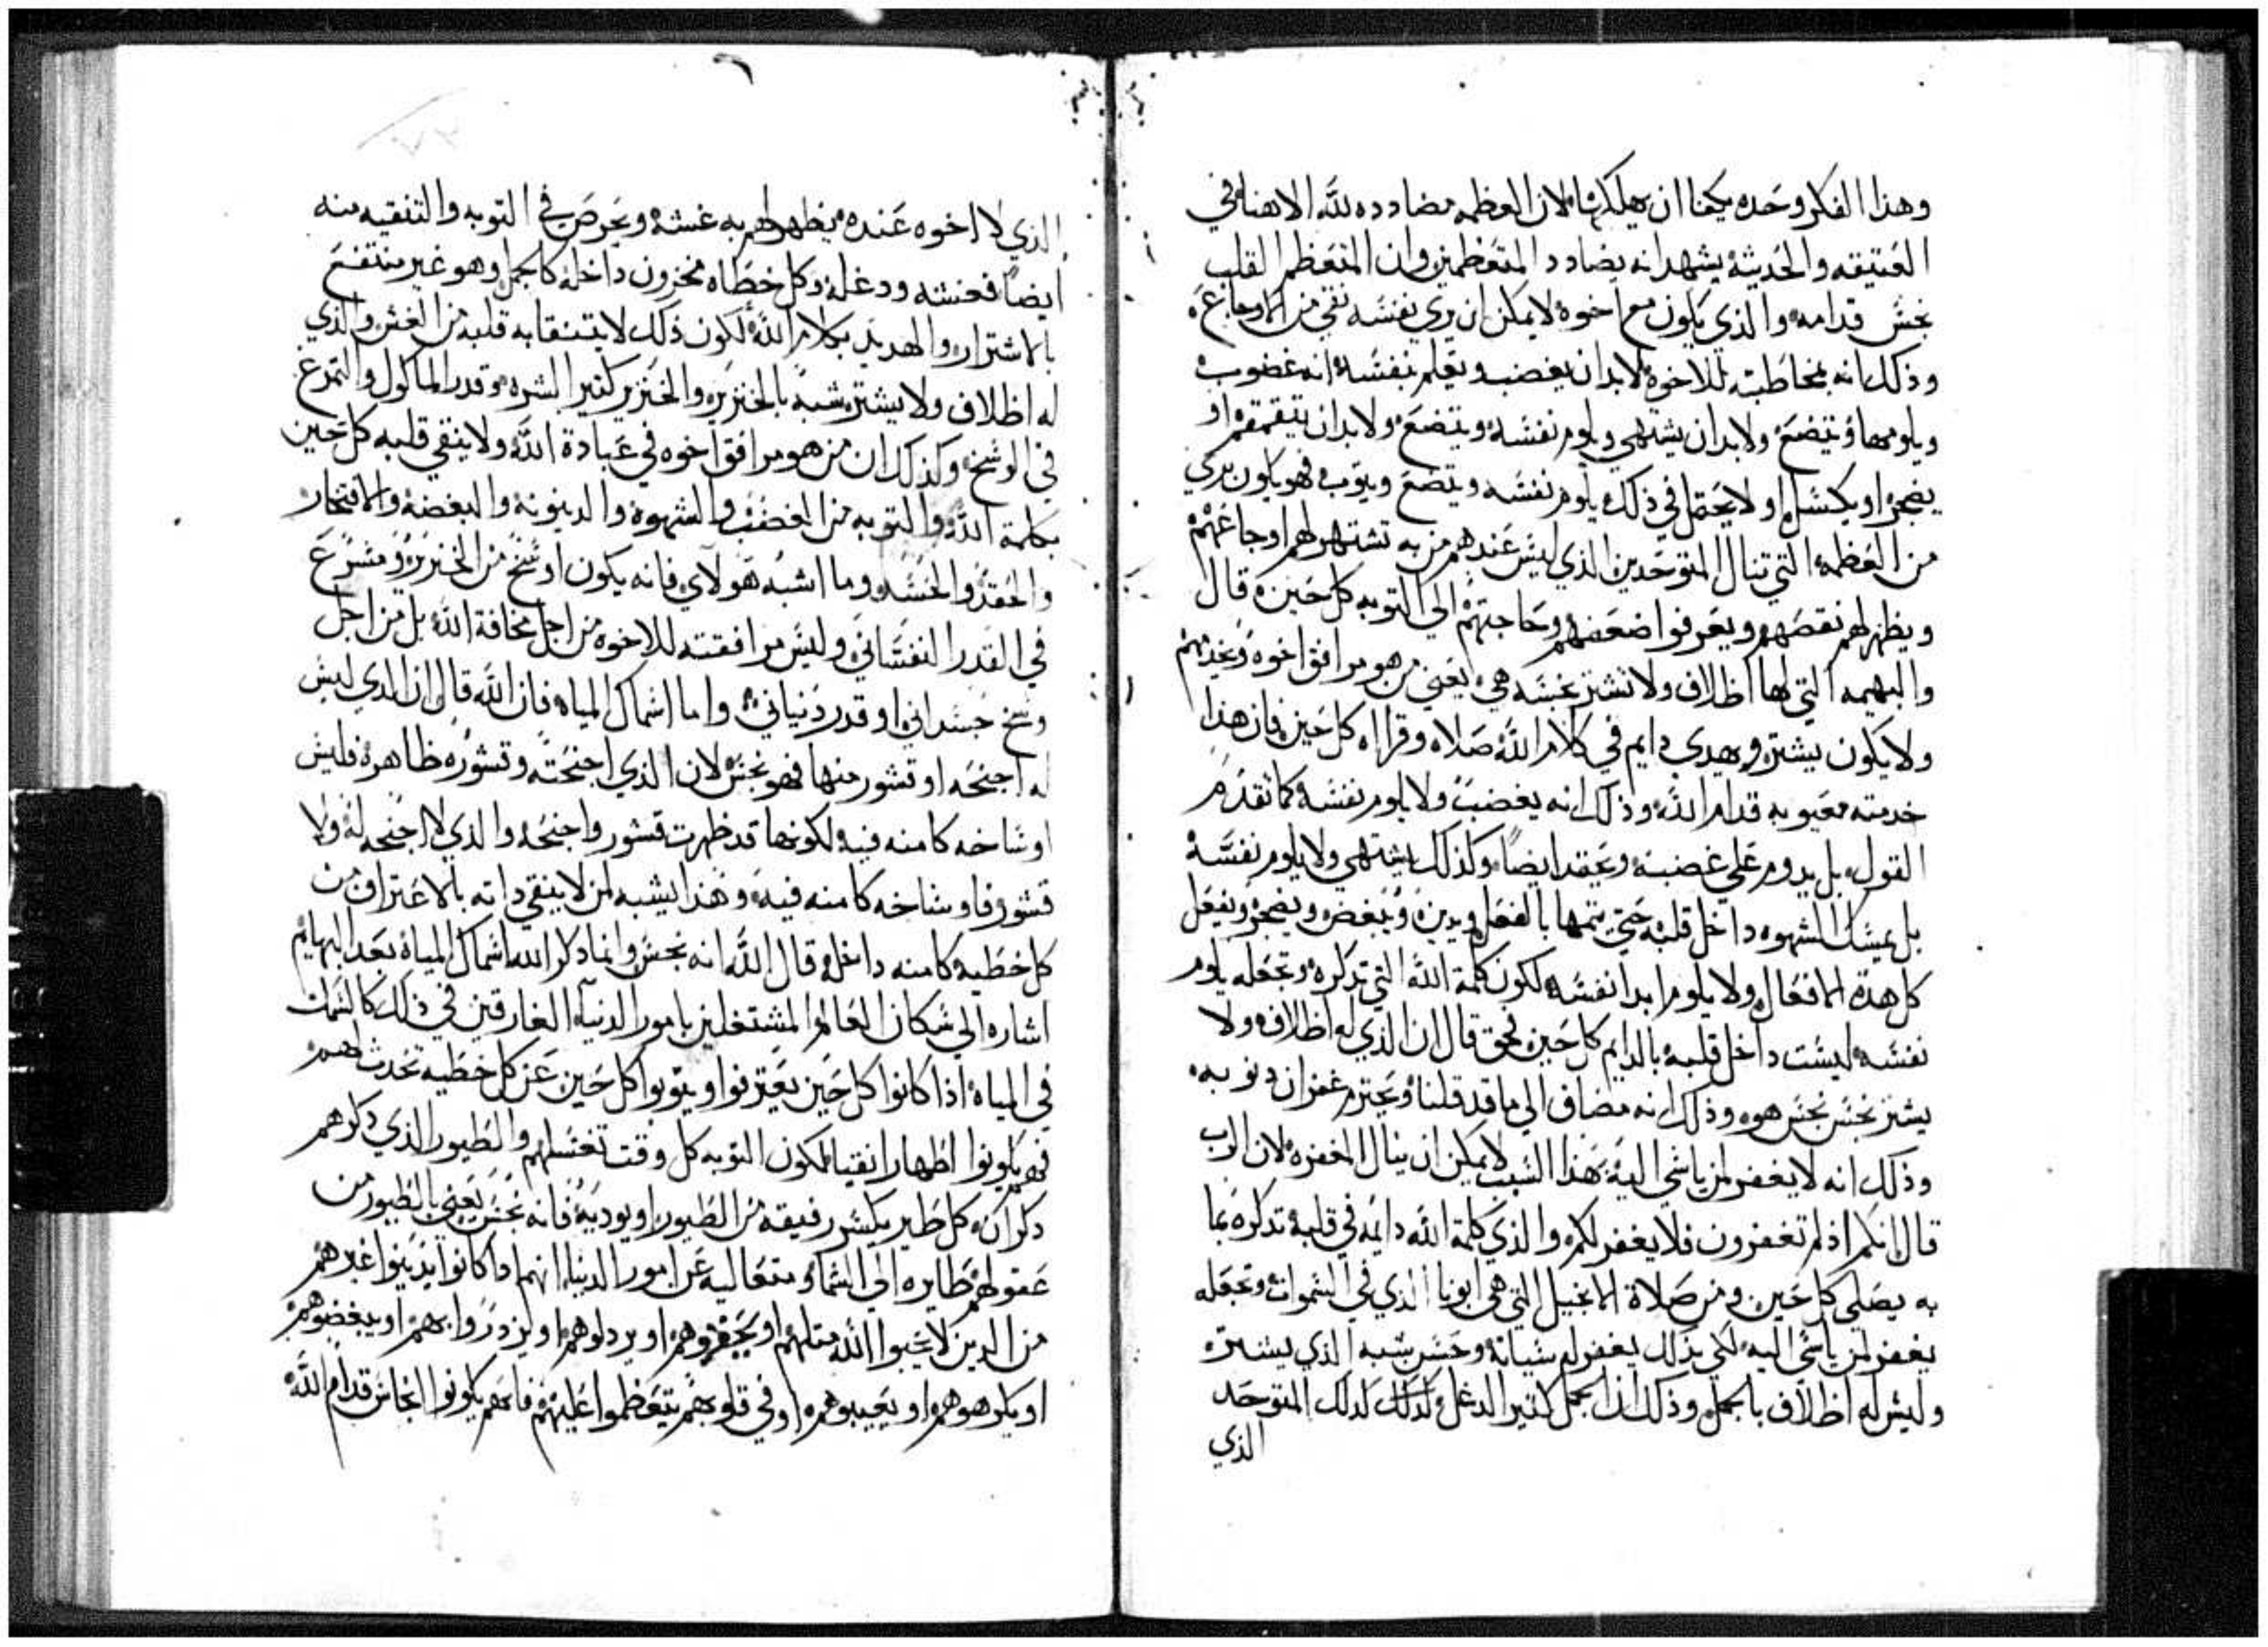 وهذا الفكر وحده يكفنا ان يهلكنا لان العظمه مضادده لله الاهنا في
العتيقه والحديثه يشهد انه يضادد المتعظمين وان المتعظم القلب
نجس قدامه والذي يكون مع اخوه لا يمكن ان يري نفسه نقي من الاوجاع
وذلك انه بمخاطبته للاخوه لابد ان يغضب ويعلم نفسه انه غضوب
ويلومها ويتضع ولابد ان يشتهي ويلوم نفسه ويتضع ولابد ان يتقمقم او
يضجر او يكسل او لا يحتمل في ذلك يلوم نفسه ويتضع ويتوب فهو يكون بري
من العظمه التي تنال المتوحدين الذي ليس عندهم من به تشتهر لهم اوجاعهم
ويظهر لهم نقصهم ويعرفوا ضعفهم وحاجتهم الي التوبه كل حين قال
والبهيمه التي لها اظلاف ولا تشتر نجسه هي يعني من هو مرافق اخوه
ولا يكون يشتر ويهدى دايم في كلام الله صلاه وقراه كل حين فان هذا
خدمته معيوبه قدام الله وذلك انه يغضب ولا يلوم نفسه كما تقدم
القول بل يدوم علي غضبه ويحقد ايضا وكذلك يشتهي ولا يلوم نفسه
بل يمسك الشهوه داخل قلبه حتي يتمها بالفعل ويدين ويبغض ويضجر ويفعل
كل هذه الافعال ولا يلوم ابدا نفسه لكون كلمة الله التي تذكره وتجعله يلوم
نفسه ليست داخل قلبه بالدايم كل حين فحق قال ان الذي له اظلاف ولا
يشتر نجس نجس هو وذلك انه مضاف الي ما قد قلنا ويحترم غفران دنوبه
وذلك انه لا يغفر لمن ياسي اليه هذا السبب لا يمكن ان ينال المغفره لان الرب
قال انكم اذ لم تغفرون فلا يغفر لكم والذي كلمة الله دايمه في قلبه تذكره بما
به يصلي كل حين ومن صلاة الانجيل التي هي ابونا الذي في السموات وتجعله
يغفر لمن ياسي اليه لكي بدلك يغفر له سياته وحسن شبه الذي يشتر
وليس له اظلاف بالجمل وذلك ان الجمل كتير الدغل وكذلك المتوحد
الذي
الذي لا اخوه عنده يظهر لهم به غشه ويحرص في التوبه والتنقيه منه
ايضا فغشه ودغله وكل خطاه مخزون داخله كالجمل وهو غير منتفع
بالاشترار والهديد بكلام الله لكون ذلك لا يتنقا به قلبه من الغش والذي
له اظلاف ولا يشتر شبه بالخنزير والخنزير كتير الشره وقدر الماكول والتمرغ
في الوسخ وكذلك ان من هو مرافق اخوه في عبادة الله ولا ينقي قلبه كل حين
بكلمة الله والتوبه من الغضب والشهوه والدينونه والبغضه والافتخار
والحقد والحسد وما اشبه هولاي فانه يكون اوسخ من الخنزير
في القدر النفساني وليس مرافقته للاخوه من اجل مخافة الله بل من اجل
وسخ جسداني او قدر دنياني واما اسماك المياه فان الله قال ان الذي ليس
له اجنحه او قشور منها فهو نجس لان الذي اجنحته وقشوره ظاهره فليس
اوساخه كامنه فيه لكونها قد ظهرت قشور واجنحه والذي لا اجنحه له ولا
قشور فاوساخه كامنه فيه وهذا يشبه لمن لا ينقي داته بالاعتراف من
كل خطيه كامنه داخله قال الله انه نجس وانما دكر الله اسماك المياه بعد البهايم
اشاره الي سكان العالم المشتغلين بامور الدنيا الغارقين في ذلك كالسمك
في المياه اذا كانوا كل حين يعترفوا ويتوبوا كل حين عن كل خطيه تحدث لهم
فهم يكونوا اطهار انقيا لكون التوبه كل وقت تغسلهم والطيور الذي دكرهم
دكر ان كل طير يكسر رفيقه من الطيور او يوديه فانه نجس يعني بالطيور من
عقولهم طايره الي السما متعاليه عن امور الدنيا انهم ادا كانوا يدينوا غيرهم
من الدين لا يحبوا الله متلهم او يحقروهم او يردلوهم او يزدروا بهم او يبغضوهم
او يكرهوهم او يعيبوهم او في قلوبهم يتعظموا عليهم فانهم يكونوا انجاس قدام الله